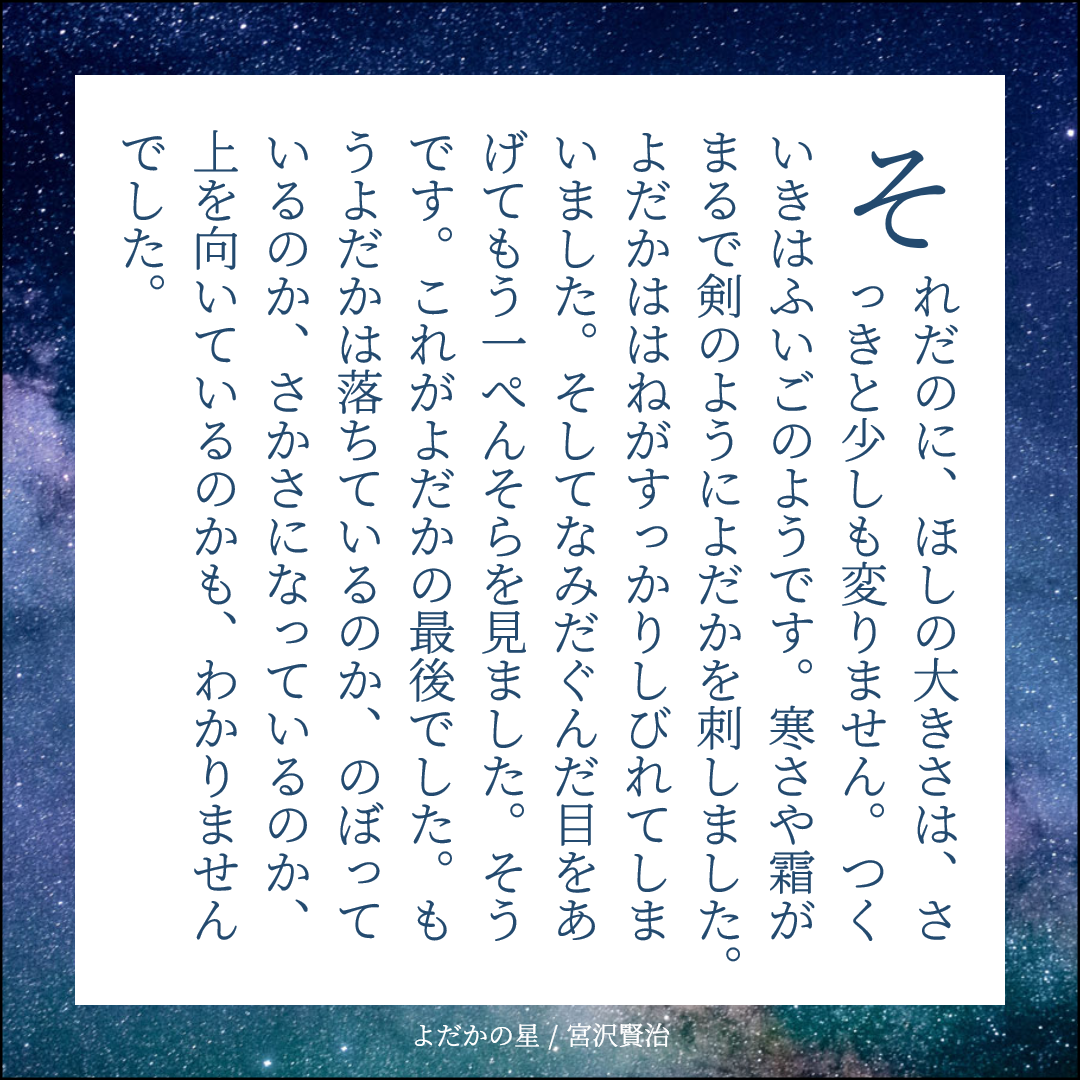 それだのに、ほしの大きさは、さ
っきと少しも変りません。つく
いきはふいごのようです。寒さや霜が
まるで剣のようによだかを刺しました。
よだかははねがすっかりしびれてしま
いました。そしてなみだぐんだ目をあ
げてもう一ぺんそらを見ました。そう
です。これがよだかの最後でした。も
うよだかは落ちているのか、のぼって
いるのか、さかさになっているのか、
上を向いているのかも、わかりません
でした。
よだかの星 / 宮沢賢治